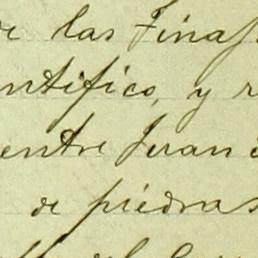 de las Tinaj
ntífico, y r
entre Juan
de piedras